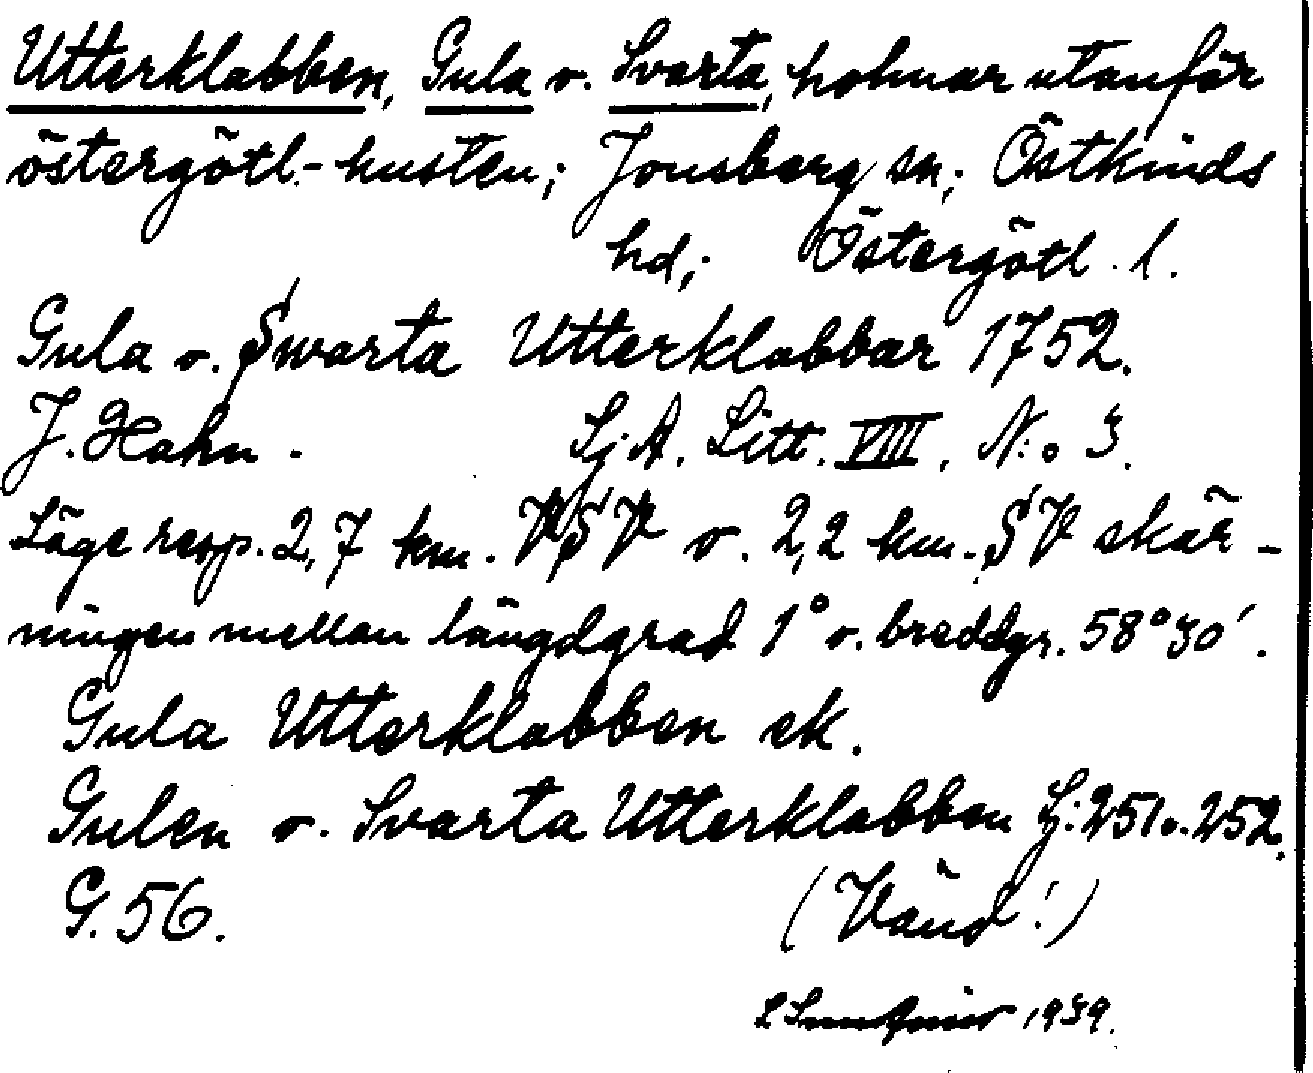 Utterklabben, Gula o. Svarta, holmar utanför
östergötl.-kusten; Jonsberg sn; Östkinds
hd; Östergötl. l.
Gula o. Swarta Utterklabbar 1752.
J. Hahn. Sj. A. Litt. VIII, N:o 3.
Läge resp. 2,7 km. VSV o. 2,2 km. SV skär-
ningen mellan längdgrad 1° o. breddgr. 58°30'.
Gula Utterklabben ek.
Gulen o. Svarta Utterklabben Lj: 251 o. 252.
G. 56. (Vänd!)
1939.